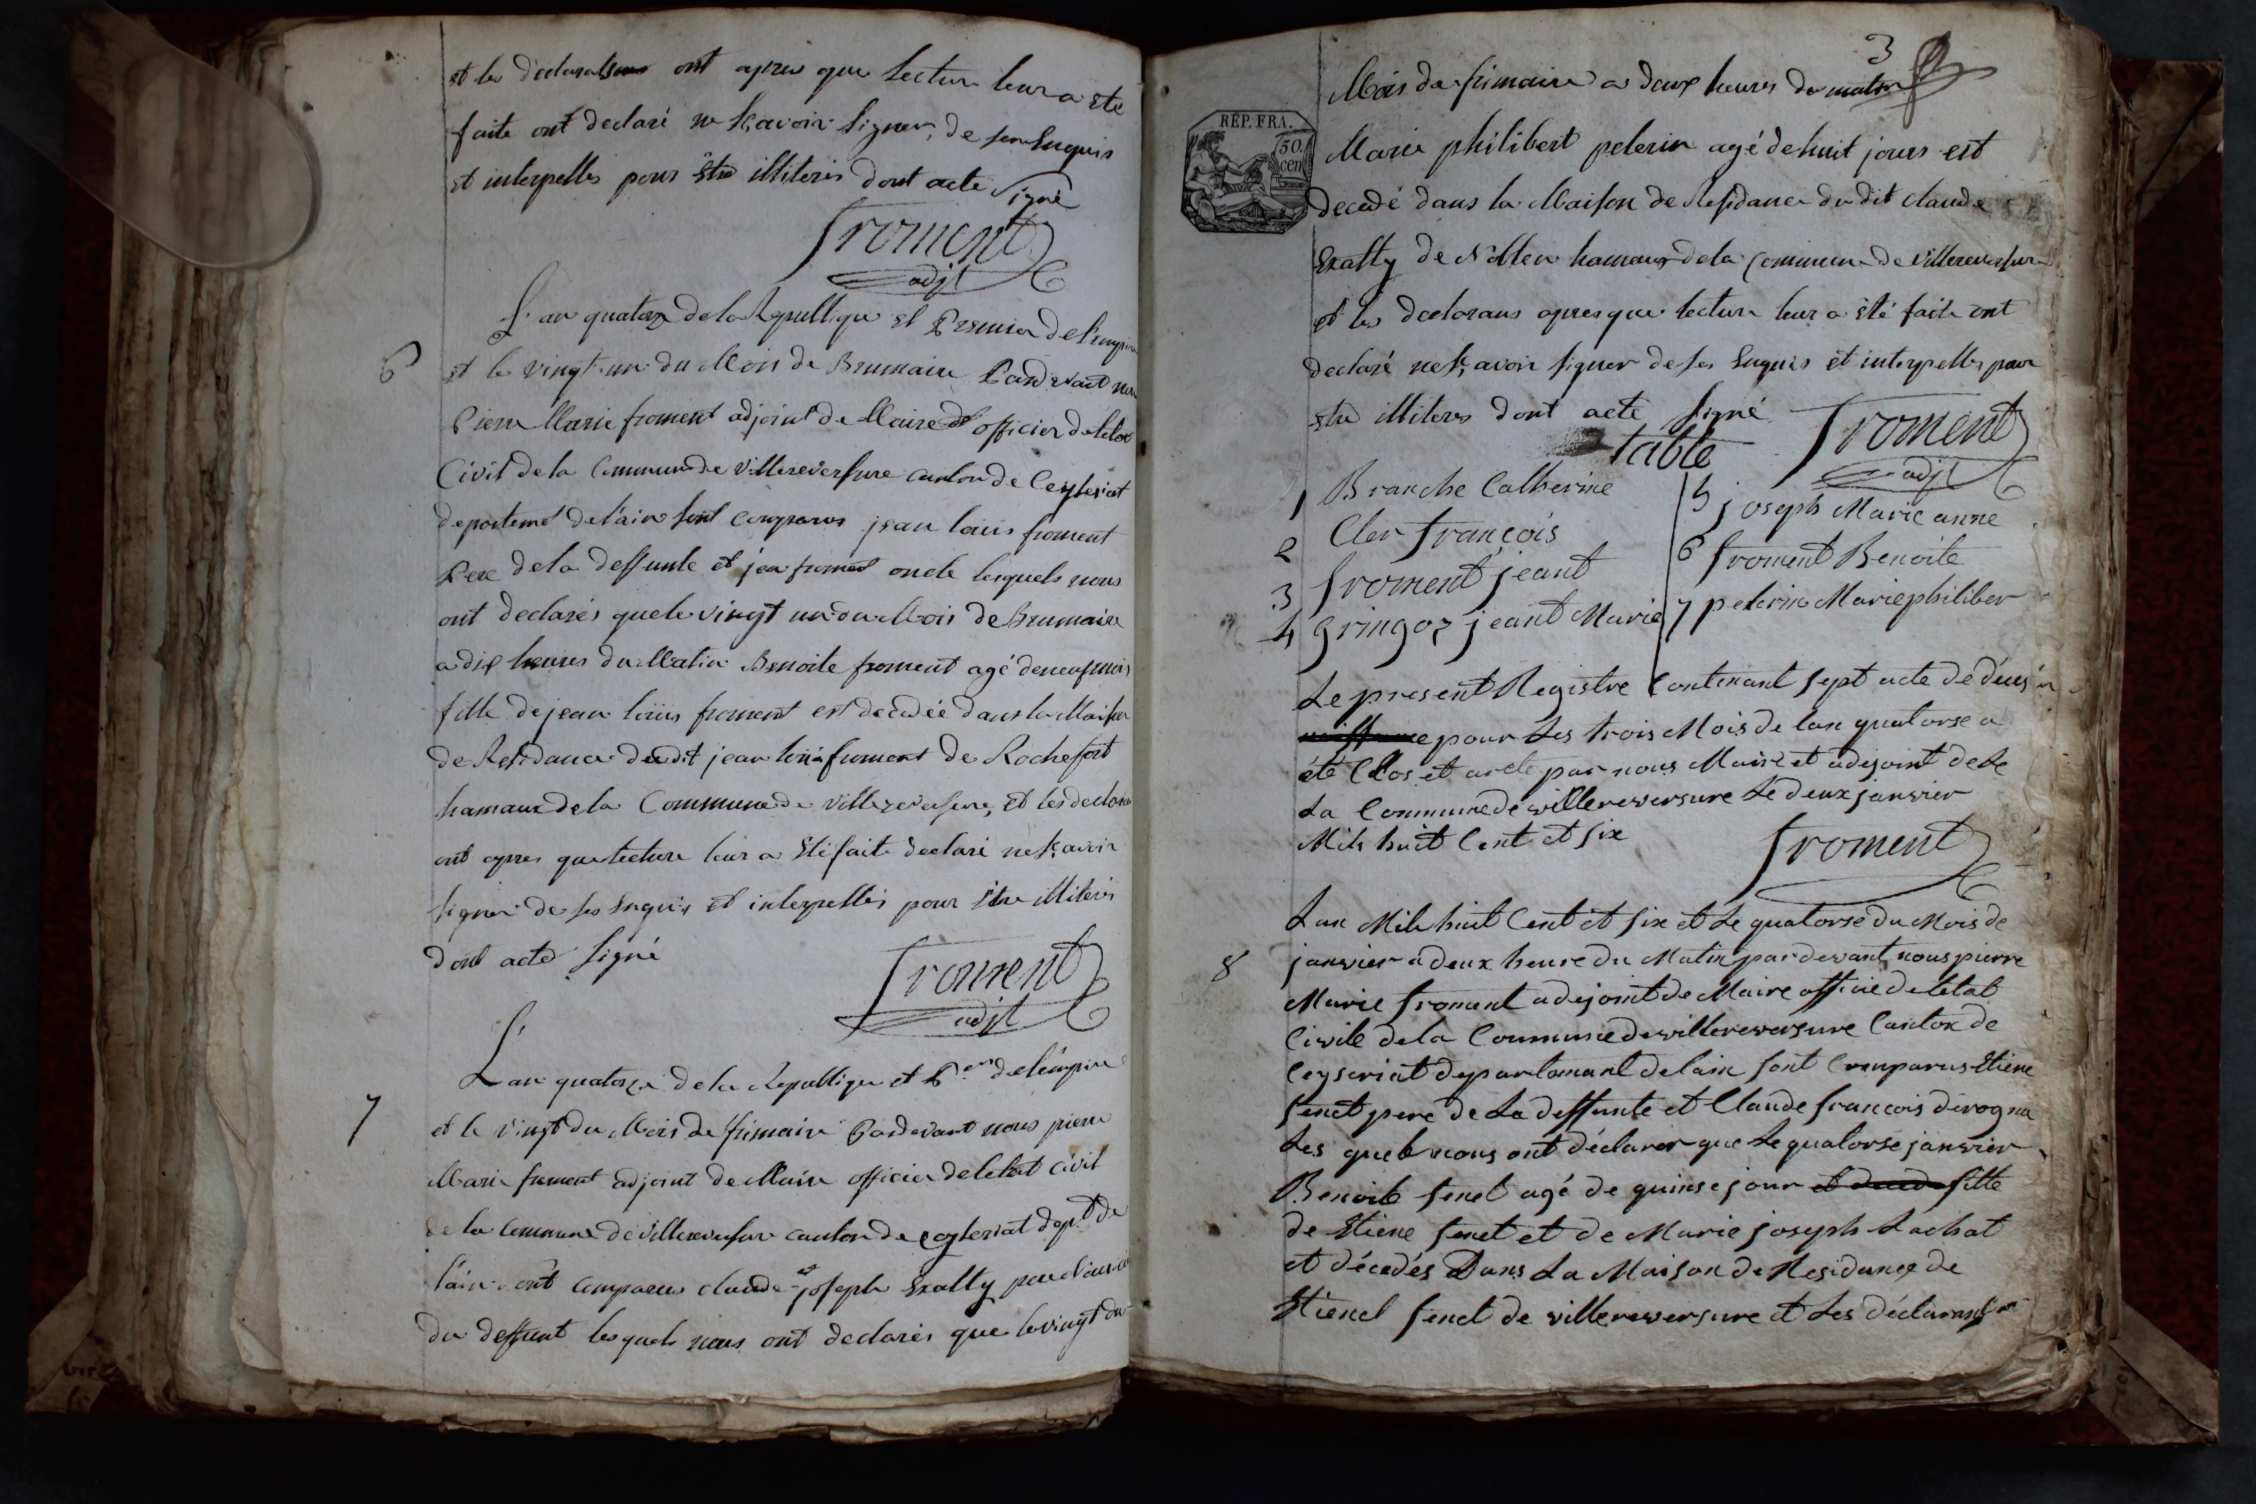 et les declarans ont apres que lecture leur a ete
faite ont declaré ne sçavoir signer, de ses enquis
et interpellés pour être illiterés dont acte signé
froment
adjt
6
L'an quatorze de la Republique et Premier de l'empire
et le vingt un du Mois de Brumaire Pardevant nous
Pierre Marie froment adjoint de Maire et officier de letat
Civil de la Commune de villereversure canton de Ceyseriat
departemet de l'ain sont comparus jean louis froment
Pere de la deffunte et jean froment oncle lesquels nous
ont declarés que le vingt un du Mois de Brumaire
a dix heures du Matin Benoite froment agé de neuf mois
fille de jean louis froment est decedée dans la Maison
de Residance du dit jean louis froment de Rochefort
hamaux de la Commune de villereversure, et les declarans
ont apres que lecture leur a été faite declaré ne sçavoir
signer de ses enquis et interpellés pour être illiterés
dont acte signé
froment
adjt
7
L'an quatorze de la Republique et Per de l'empire
et le vingt du Mois de frimaire Pardevant nous pierre
Marie froment adjoint de Maire officier de letat civil
de la commune de villereversure canton de ceyseriat dept de
l'ain sont comparus claude et joseph Exalty
du deffunt lesquels nous ont declarés que le vingt du
3
Mois de frimaire a deux heures du matin
REP. FRA.
50.
cen
Marie philibert pelerin agé de huit jours est
decedé dans la Maison de Residance du dit claude
Exalty de Noblen hamaux de la commune de villereversure
et les declarans apres que lecture leur a été faite ont
declaré ne sçavoir signer de ses enquis et interpellés pour
etre illiteres dont acte signé
froment
adjt
table
1 Branche Catherine
2 Cler françois
3 froment jeant
4 gringoz jeant Marie
5 joseph Marie anne
6 froment Benoite
7 pelerin Marie philiber
Le present Registre Contenant sept acte de déces
pour Les trois Mois de lan quatorse a
été Clos et areté par nous Maire et adejoint de
La Commune de villereversure Le deux janvier
Mile huit Cent et six
froment
8
Lan Mile huit Cent et six et Le quatorse du Mois de
janvier a deux heure du Matin par devant nous pierre
Marie froment adejoint de Maire officié de letat
Civile de la Commune de villereversure Canton de
Ceyseriat departemant de lain sont Comparus Etiene
fenet pere de La deffunte et Claude françois derogna
Les quels nous ont déclarer que Le quatorse janvier
Benoite fenet agé de quinse jour et decede fille
de Etiene fenet et de Marie joseph Lachat
et décedés Dans La Maison de Residance de
Etienel fenet de villereversure et Les déclarans